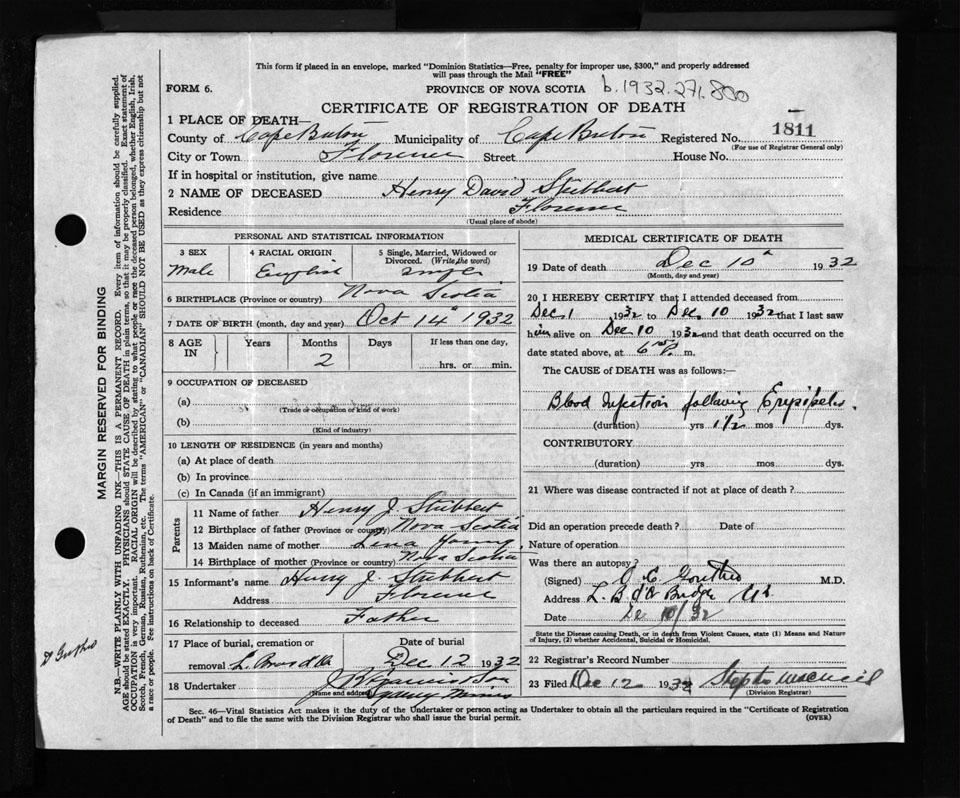 This form if placed in an envelope, marked "Dominion Statistics—Free, penalty for improper use, $300," and properly addressed
will pass through the Mail "FREE"
FORM 6. PROVINCE OF NOVA SCOTIA b.1932.271.800
CERTIFICATE OF REGISTRATION OF DEATH
1 PLACE OF DEATH—
County of Cape Breton Municipality of Cape Breton Registered No. 1811
(For use of Registrar General only)
City or Town Florence Street House No.
If in hospital or institution, give name
2 NAME OF DECEASED Henry David Stubbert
Residence Florence
(Usual place of abode)
PERSONAL AND STATISTICAL INFORMATION
3 SEX 4 RACIAL ORIGIN 5 Single, Married, Widowed or
Divorced. (Write the word)
Male English single
6 BIRTHPLACE (Province or country) Nova Scotia
7 DATE OF BIRTH (month, day and year) Oct 14th 1932
8 AGE IN Years Months Days If less than one day,
2 hrs. or min.
9 OCCUPATION OF DECEASED
(a)
(Trade or occupation or kind of work)
(b)
(Kind of industry)
10 LENGTH OF RESIDENCE (in years and months)
(a) At place of death
(b) In province
(c) In Canada (if an immigrant)
Parents
11 Name of father Henry J. Stubbert
12 Birthplace of father (Province or country) Nova Scotia
13 Maiden name of mother Lena Young
14 Birthplace of mother (Province or country) Nova Scotia
15 Informant's name Henry J. Stubbert
Address Florence
16 Relationship to deceased Father
17 Place of burial, cremation or Date of burial
removal L. Bras d'Or Dec 12 1932
18 Undertaker
(Name and address) Sydney Mines
MEDICAL CERTIFICATE OF DEATH
19 Date of death Dec 10th 1932
(Month, day and year)
20 I HEREBY CERTIFY that I attended deceased from
Dec. 1 1932 to Dec. 10 1932 that I last saw
him alive on Dec 10 1932 and that death occurred on
date stated above, at 6 m.
The CAUSE of DEATH was as follows:—
Blood Infection following Erysipelas.
(duration) yrs 1½ mos dys.
CONTRIBUTORY
(duration) yrs mos dys.
21 Where was disease contracted if not at place of death?
Did an operation precede death? Date of
Nature of operation
Was there an autopsy?
(Signed) M.D.
Address L. B d'Or Bridge N.S.
Date Dec 10/32
State the Disease causing Death, or in death from Violent Causes, state (1) Means and Nature
of Injury, (2) whether Accidental, Suicidal or Homicidal.
22 Registrar's Record Number
23 Filed Dec 12 1932
(Division Registrar)
Sec. 46—Vital Statistics Act makes it the duty of the Undertaker or person acting as Undertaker to obtain all the particulars required in the "Certificate of Registration
of Death" and to file the same with the Division Registrar who shall issue the burial permit.
(OVER)
MARGIN RESERVED FOR BINDING
N.B.—WRITE PLAINLY WITH UNFADING INK—THIS IS A PERMANENT RECORD. Every item of information should be carefully supplied.
AGE should be stated EXACTLY. PHYSICIANS should STATE CAUSE OF DEATH in plain terms, so that it may be properly classified. Exact statement of
OCCUPATION is very important. RACIAL ORIGIN will be described by stating to what people or race the deceased person belonged, whether English, Irish,
Scotch, French, German, Russian, Ruthenian, etc. The terms "AMERICAN" or "CANADIAN" SHOULD NOT BE USED as they express citizenship but not
a race or people. See instructions on back of Certificate.